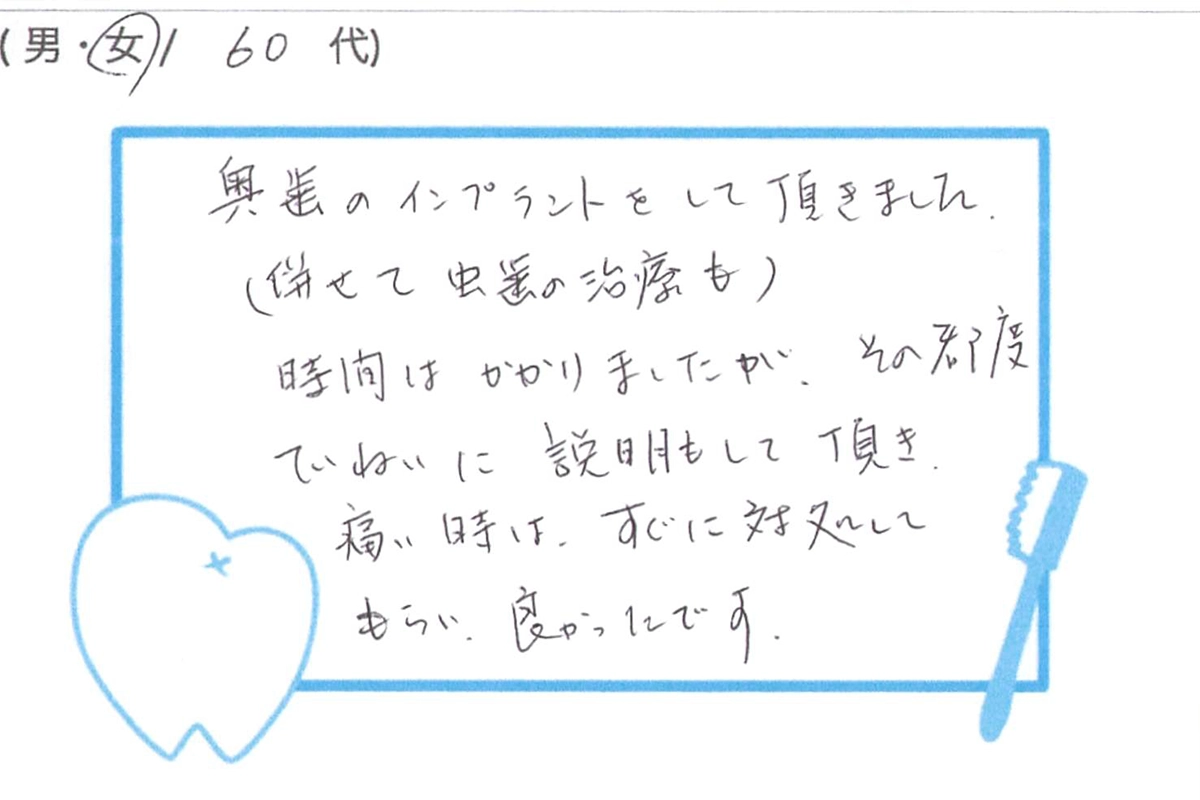 (男・女/ 60 代)
奥歯のインプラントをして頂きました.
(併せて虫歯の治療も)
時間はかかりましたが、その都度
ていねいに説明もして頂き、
痛い時は、すぐに対処して
もらい、良かったです.